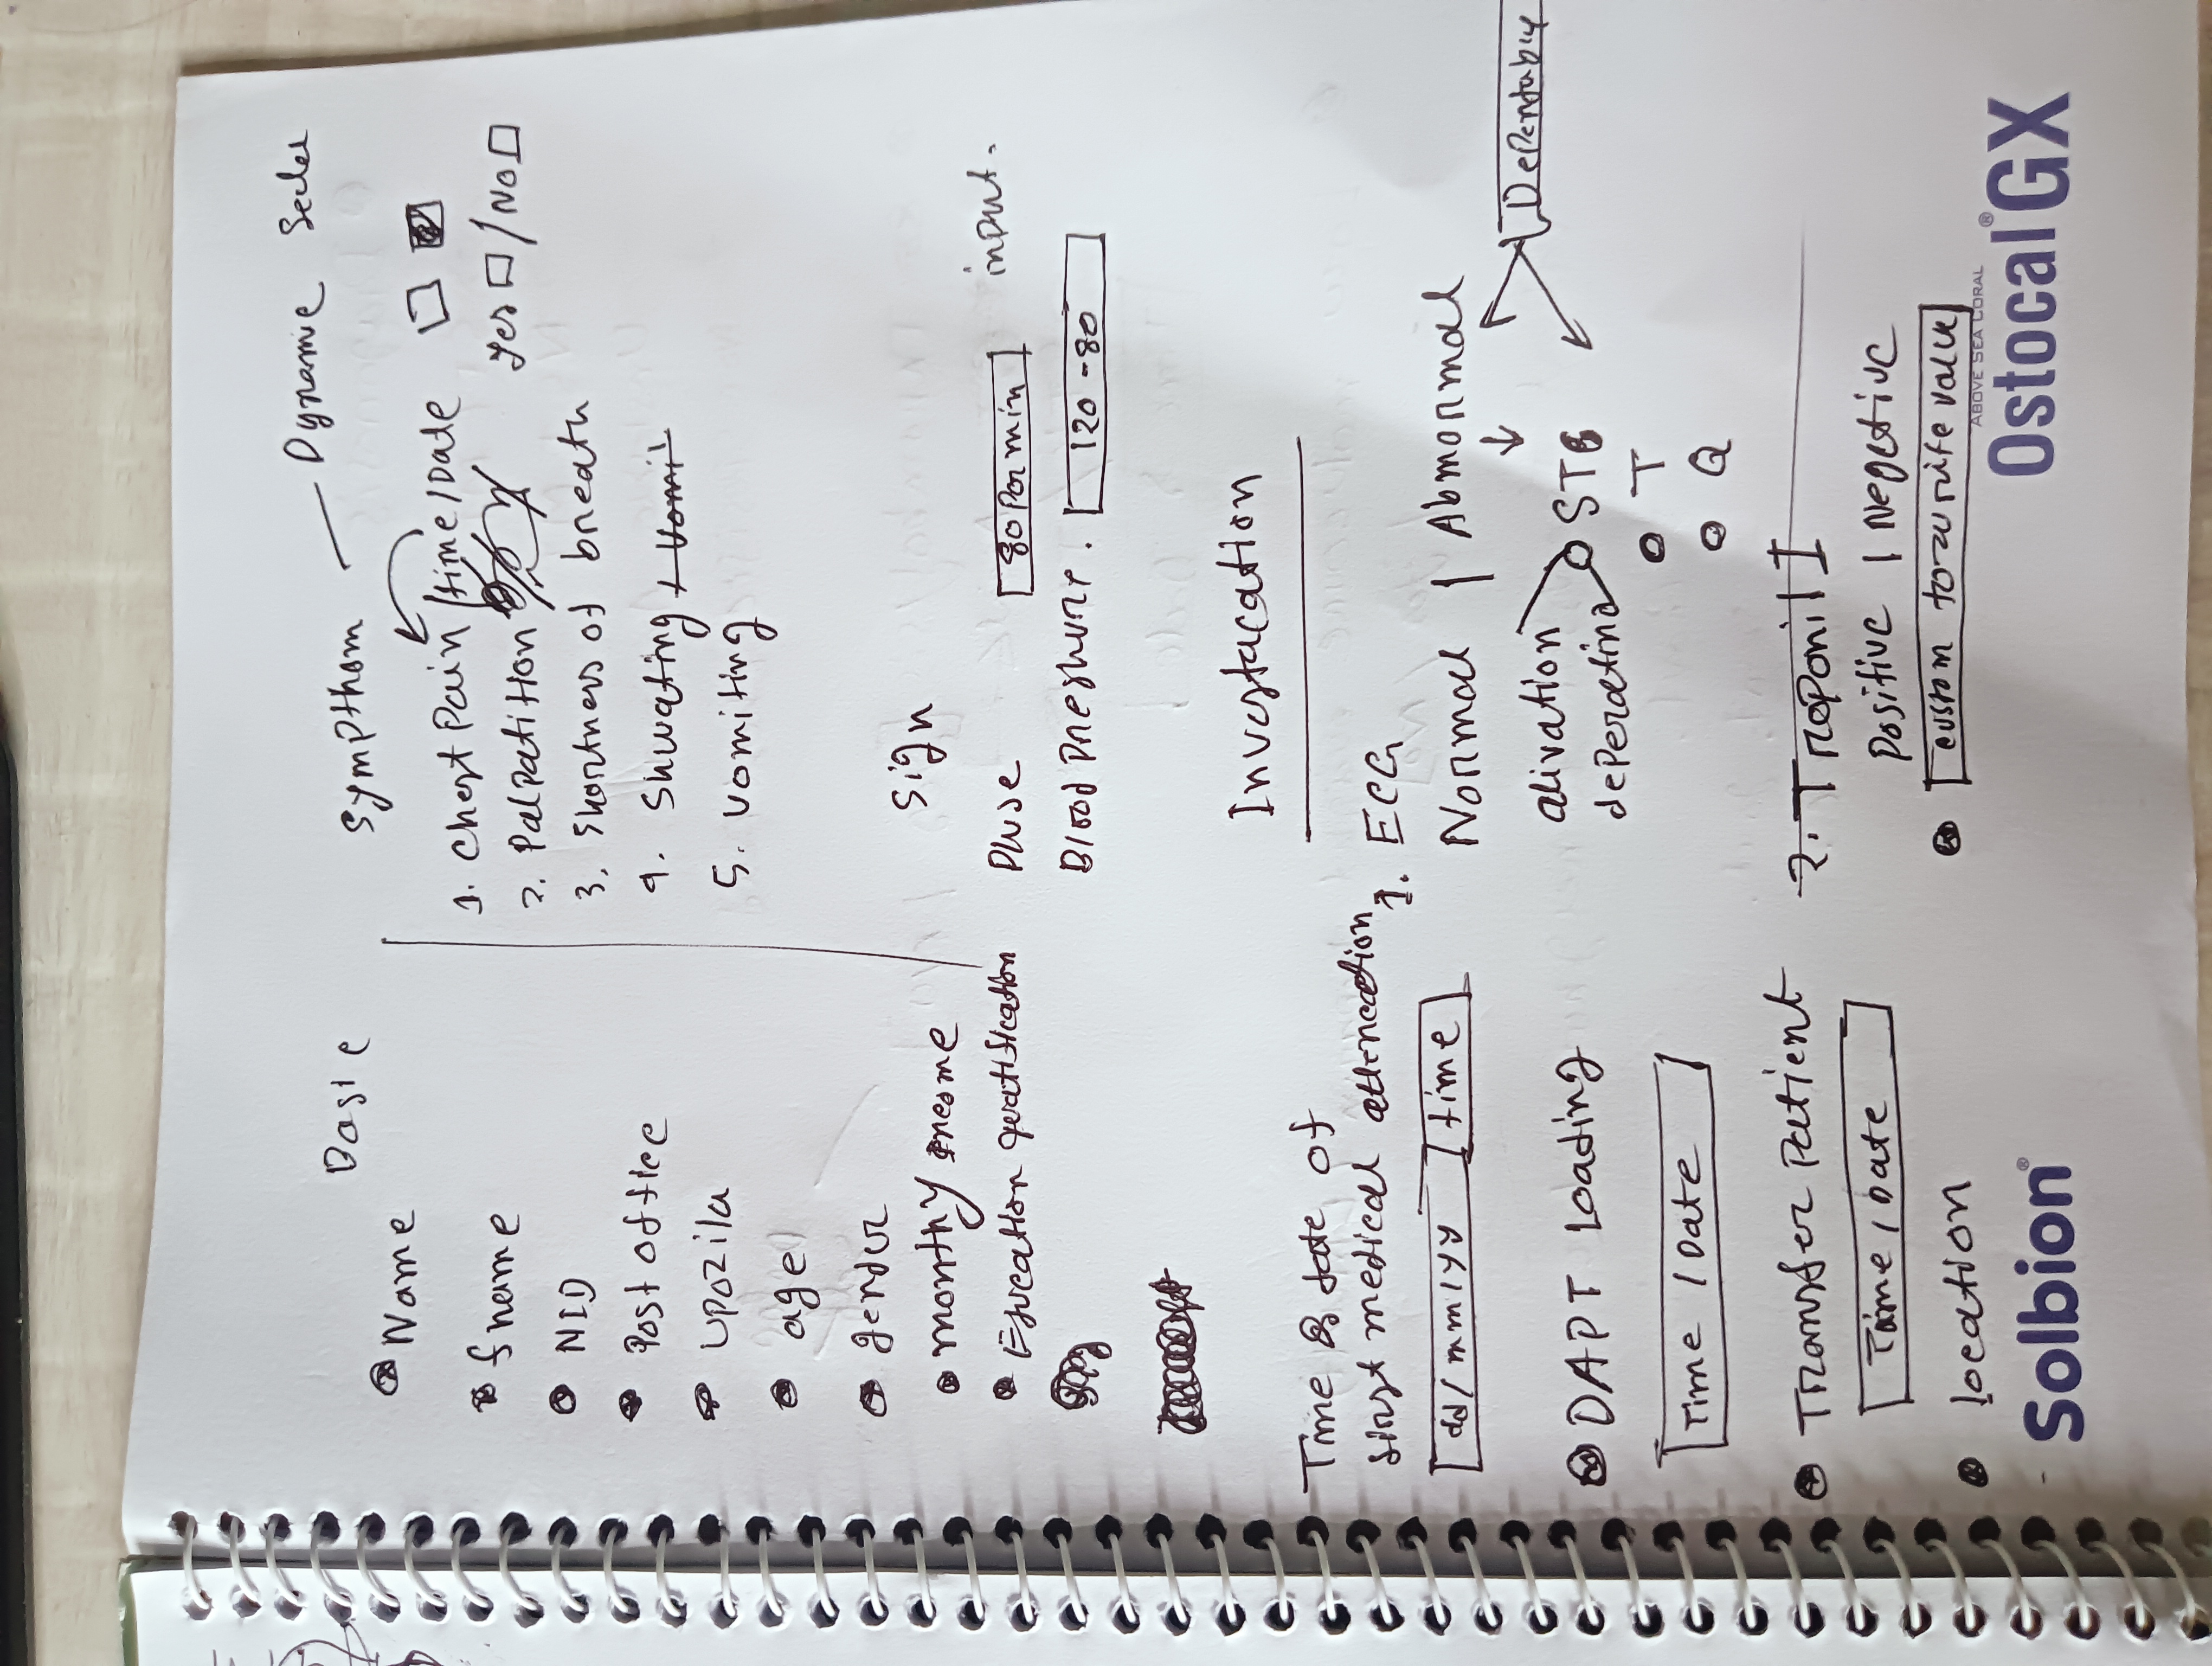 Basic
Name
fname
NID
Post office
upozila
age
gender
monthy income
Time & date of
first medical
dd/mm/yy | time
DAPT Loading
Time / Date
Transfer Patient
Time / Date
location
Sympthom — Dynamic
1. Chest Pain / time / Date
2. Palpatition Yes / No
3. Shortness of breath
4. Shwating + Vomit
5. vomiting
Sign
Pluse 80 Per min input.
Blood Preshure. 120 - 80
Investacation
1. ECG
Normal | Abmormal
Dependably
alivation
ST
T
Q
2. Troponil I
Positive | Negetive
custom to write value
ABOVE SEA CORAL
Solbion®
Ostocal® GX